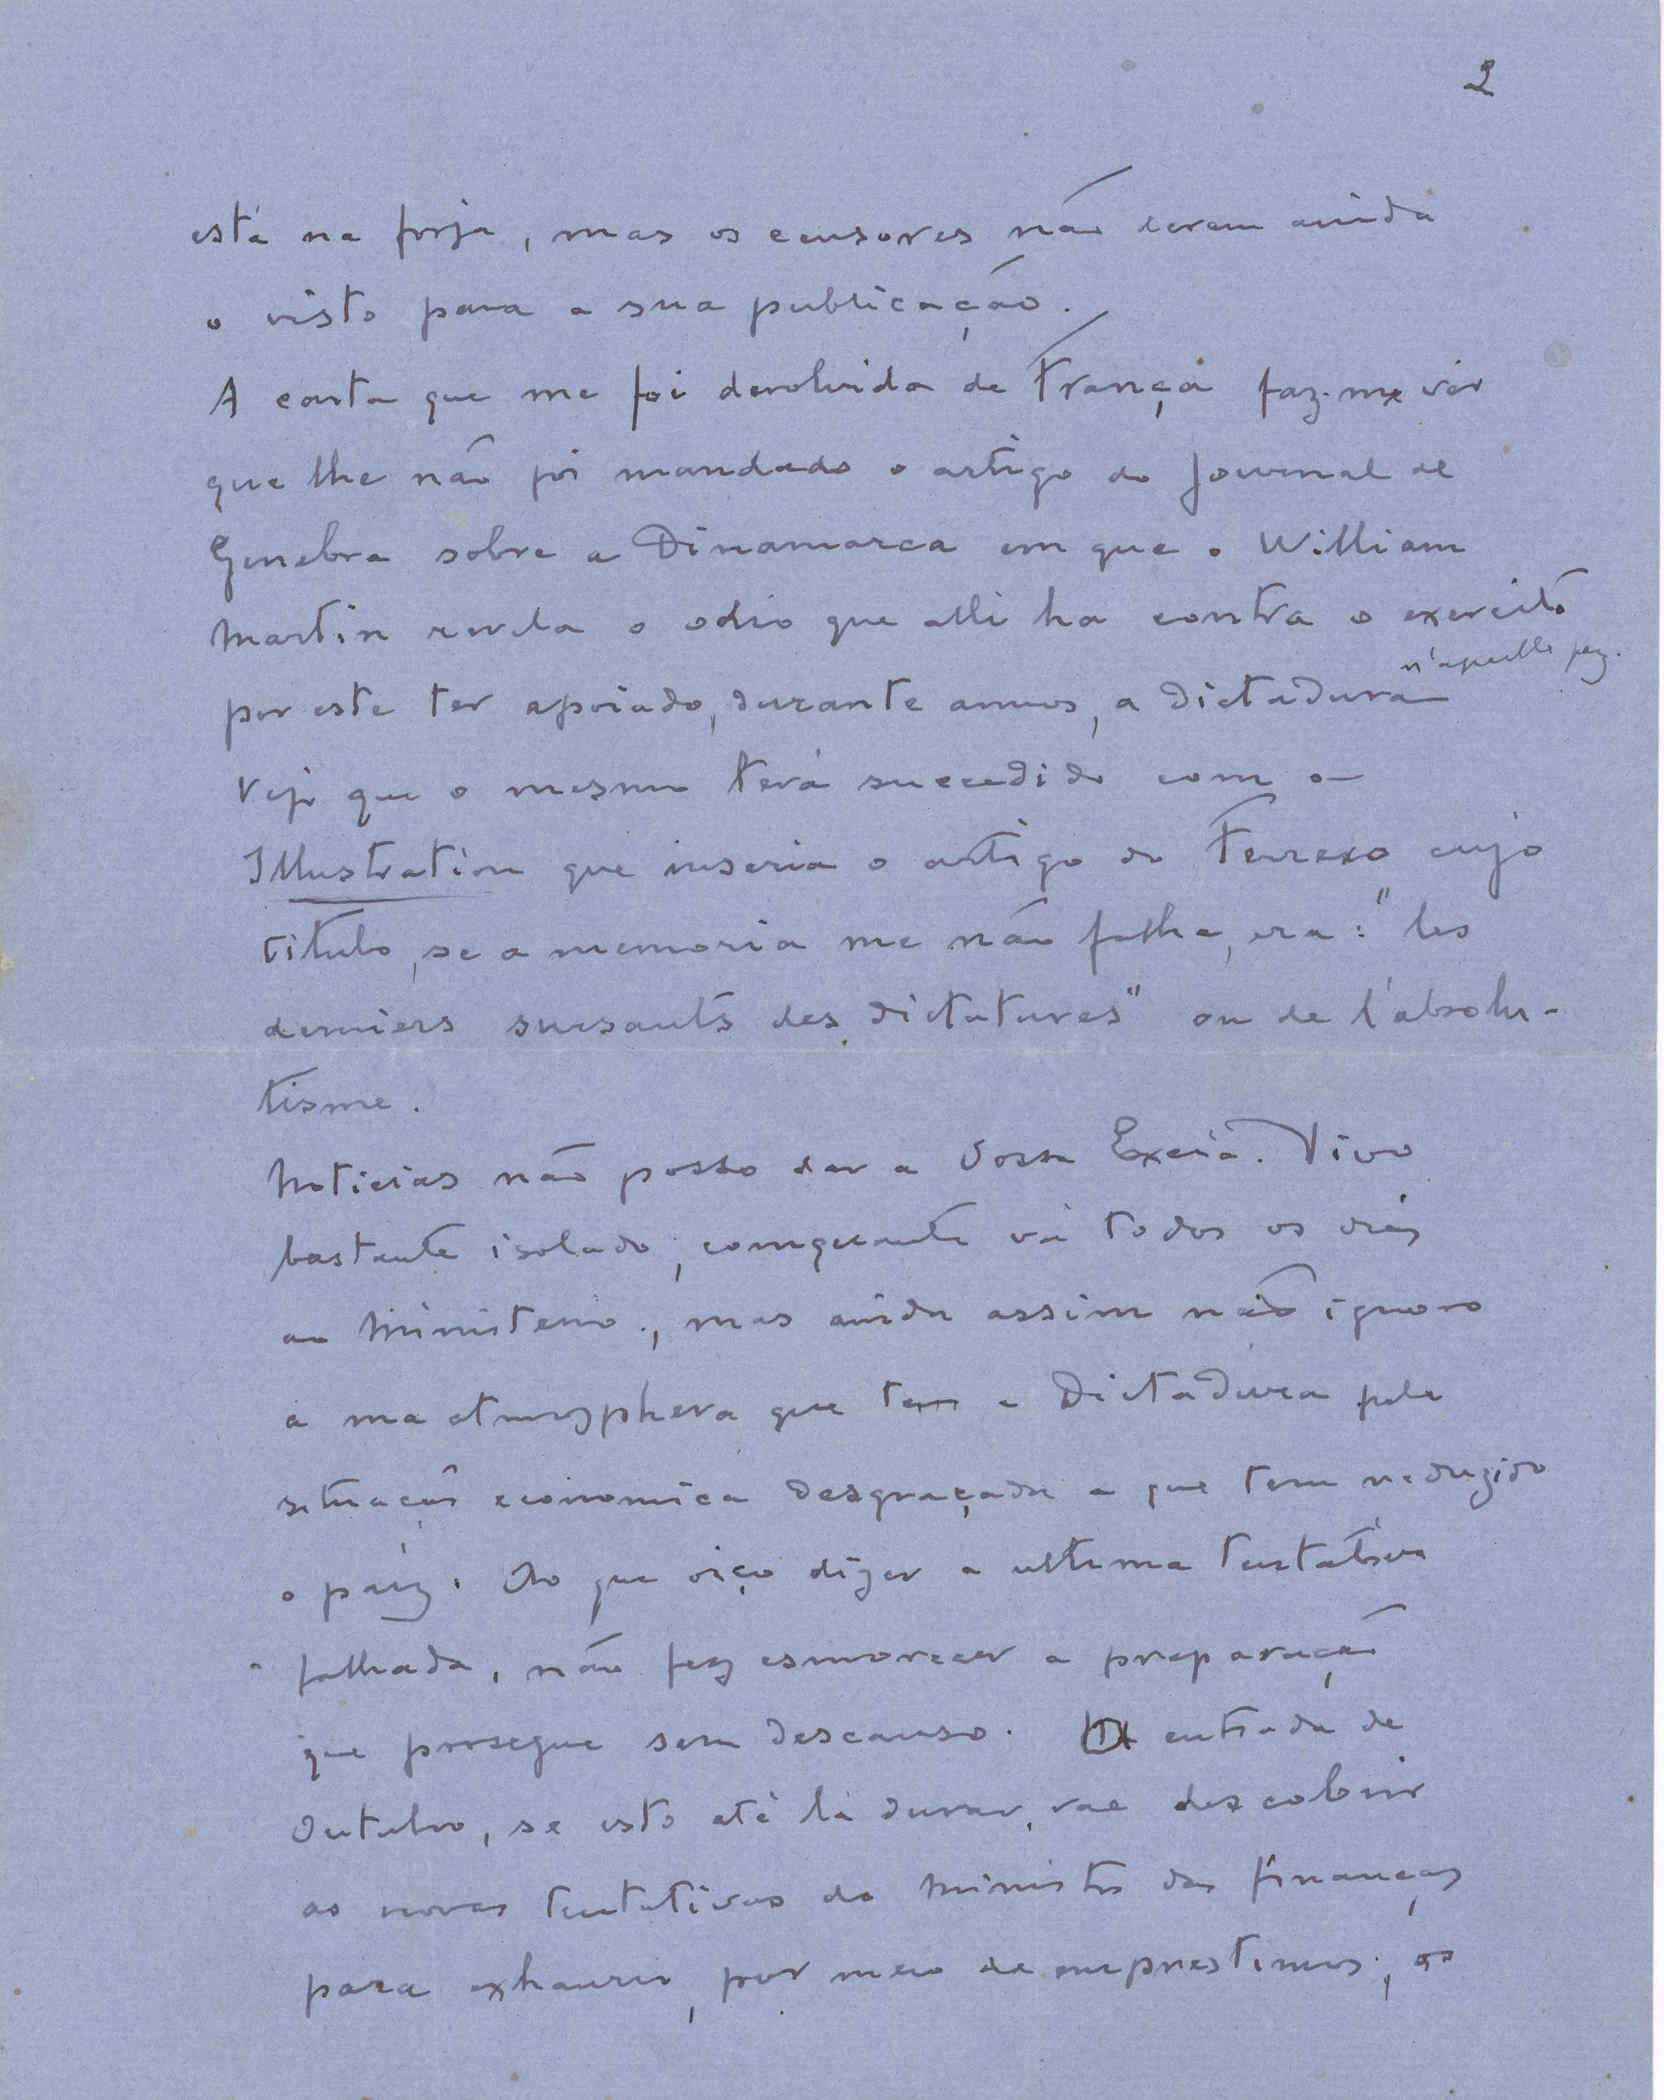 2
está na forja, mas os censores não deram ainda
o visto para a sua publicação.
A carta que me foi devolvida de França faz-me ver
que lhe não foi mandado o artigo do Journal de
Genebra sobre a Dinamarca em que o William
Martin revela o odio que alli ha contra o exercito
n'aquelle paiz.
por este ter apoiado, durante annos, a dictadura
Vejo que o mesmo terá succedido com o
Illustration que inseria o artigo do Ferrero cujo
titulo, se a memoria me não falha, era: "les
derniers sursauts des dictatures" ou de l'absolu-
tisme.
Noticias não posso dar a Vossa Excia. Vivo
bastante isolado, comquanto vá todos os dias
ao Ministerio, mas ainda assim não ignoro
a ma atmosphera que tem a Dictadura pela
situação economica desgraçada a que tem reduzido
o paiz. Ao que oiço dizer a ultima tentativa
falhada, não fez esmorecer a preparação
que prosegue sem descanso. A entrada de
Outubro, se isto até lá durar, vae descobrir
as novas tentativas do Ministro das Finanças
para exhaurir, por meio de emprestimos, os